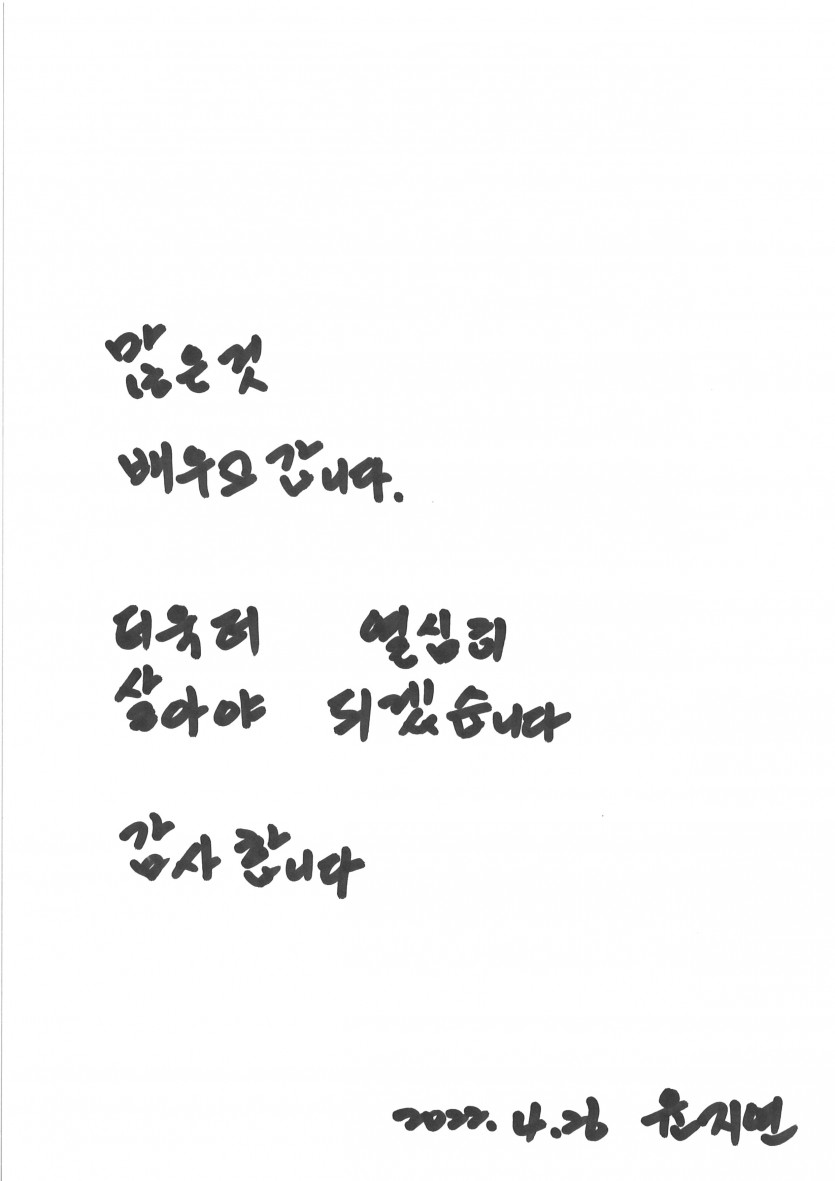 많은것
배우고 갑니다.
더욱더 열심히
살아야 되겠습니다
감사합니다
2022. 4. 26 윤지연